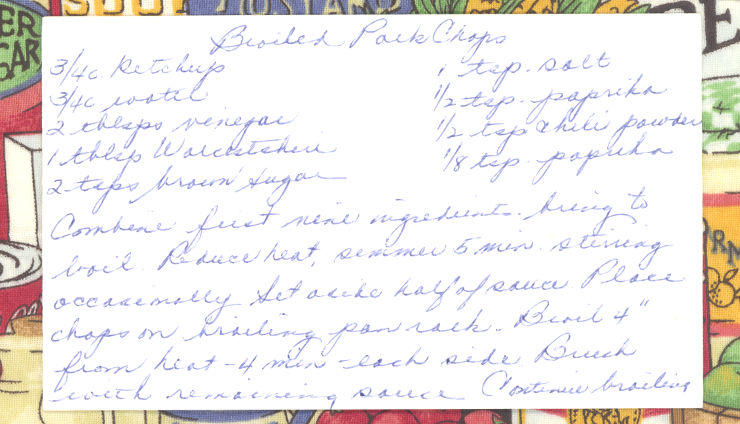 Broiled Pork Chops
3/4 c ketchup
3/4 c water
2 tblsps vinegar
1 tblsp Worcestshire
2 tsps brown sugar
1 tsp. salt
1/2 tsp. paprika
1/2 tsp chili powder
1/8 tsp. paprika
Combine first nine ingredients. bring to
boil. Reduce heat, simmer 5 min. stirring
occasionally Set aside half of sauce Place
chops on broiling pan rack. Broil 4"
from heat - 4 min - each side Brush
with remaining sauce Continue broiling